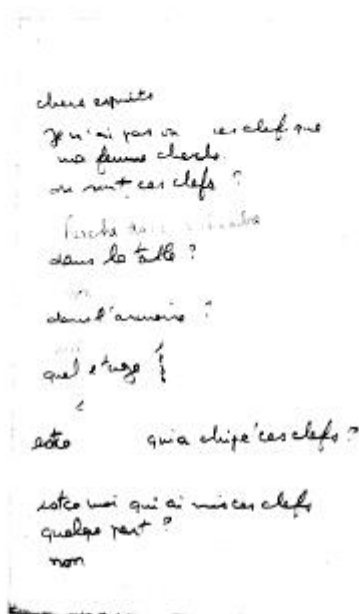 chers esprits
Je n'ai pas vu ces clefs que
ma femme cherche.
ou sont ces clefs ?
Perche dans
dans la table ?
non
dans l'armoire ?
quel etage
estce qui a chipé ces clefs ?
estce moi qui ai mis ces clefs
quelque part ?
non